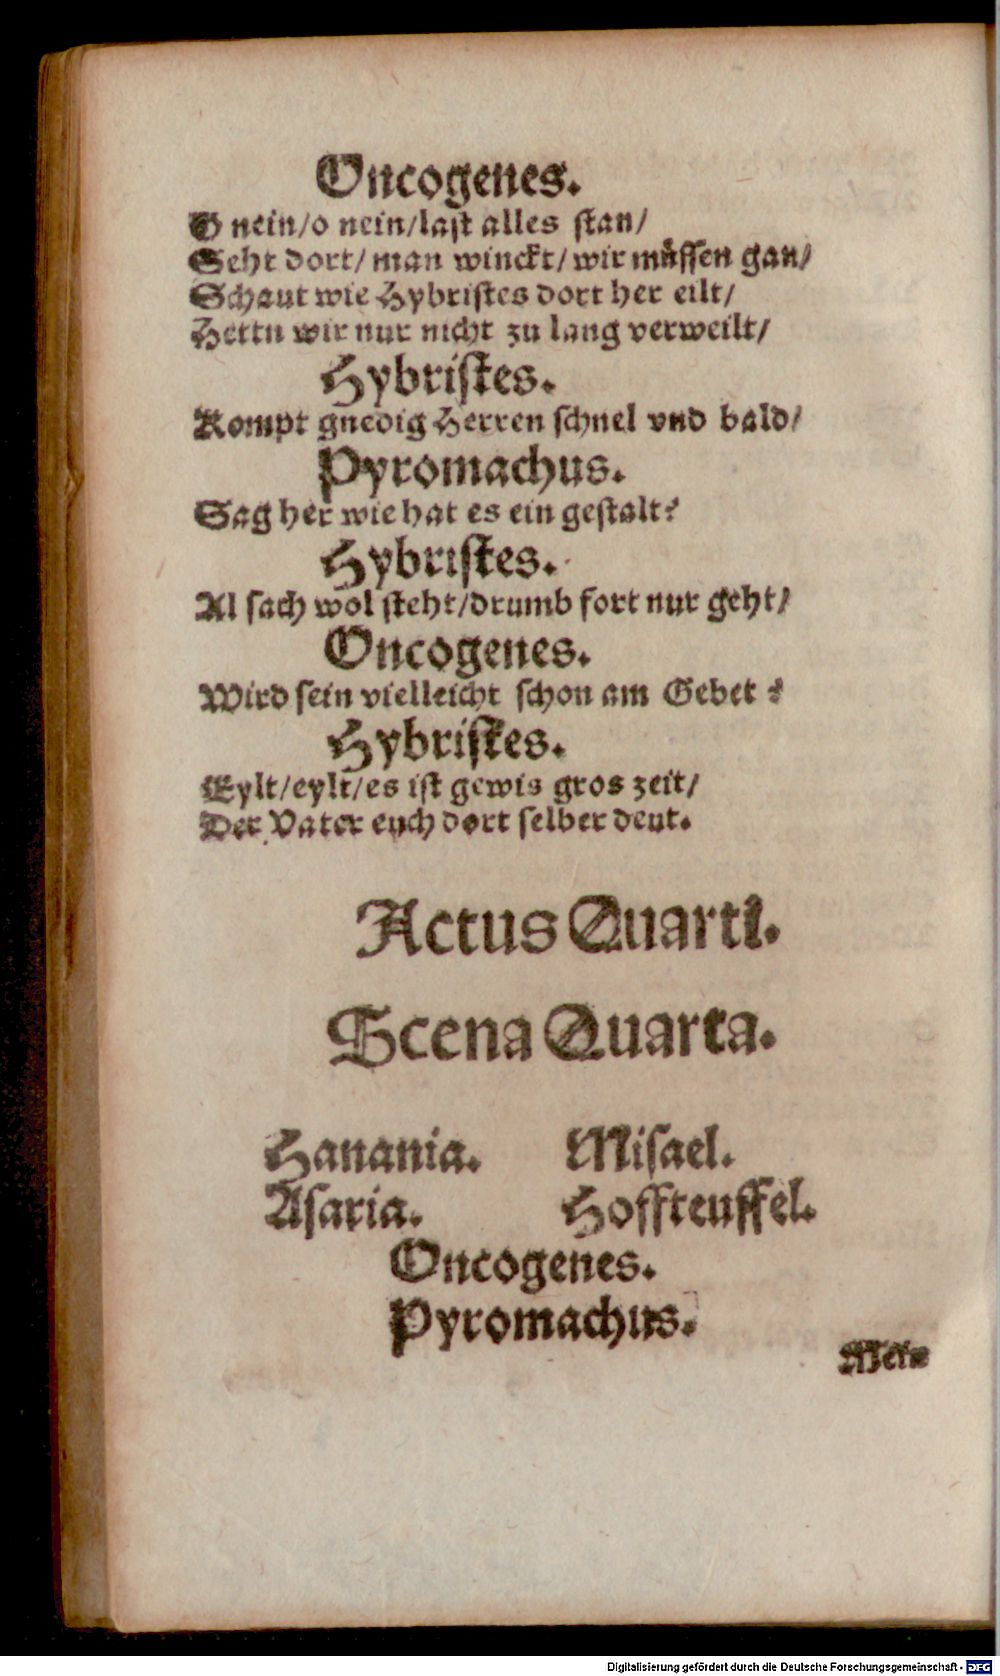 Oncogenes.
O nein/o nein/last alles stan/
Seht dort/ man winckt/ wir müssen gan/
Schaut wie Hybristes dort her eilt/
Hettn wir nur nicht zu lang verweilt/
Hybristes.
Kompt gnedig Herren schnel vnd bald/
Pyromachus.
Sag her wie hat es ein gestalt?
Hybristes.
Al sach wol steht/drumb fort nur geht/
Oncogenes.
Wird sein vielleicht schon am Gebet ?
Hybristes.
Eylt/eylt/es ist gewis gros zeit/
Der Vater euch dort selber deut.
Actus Quarti.
Scena Quarta.
Hanania. Misael.
Asaria. Hoffteuffel.
Oncogenes.
Pyromachus.
Digitalisierung gefördert durch die Deutsche Forschungsgemeinschaft - DFG